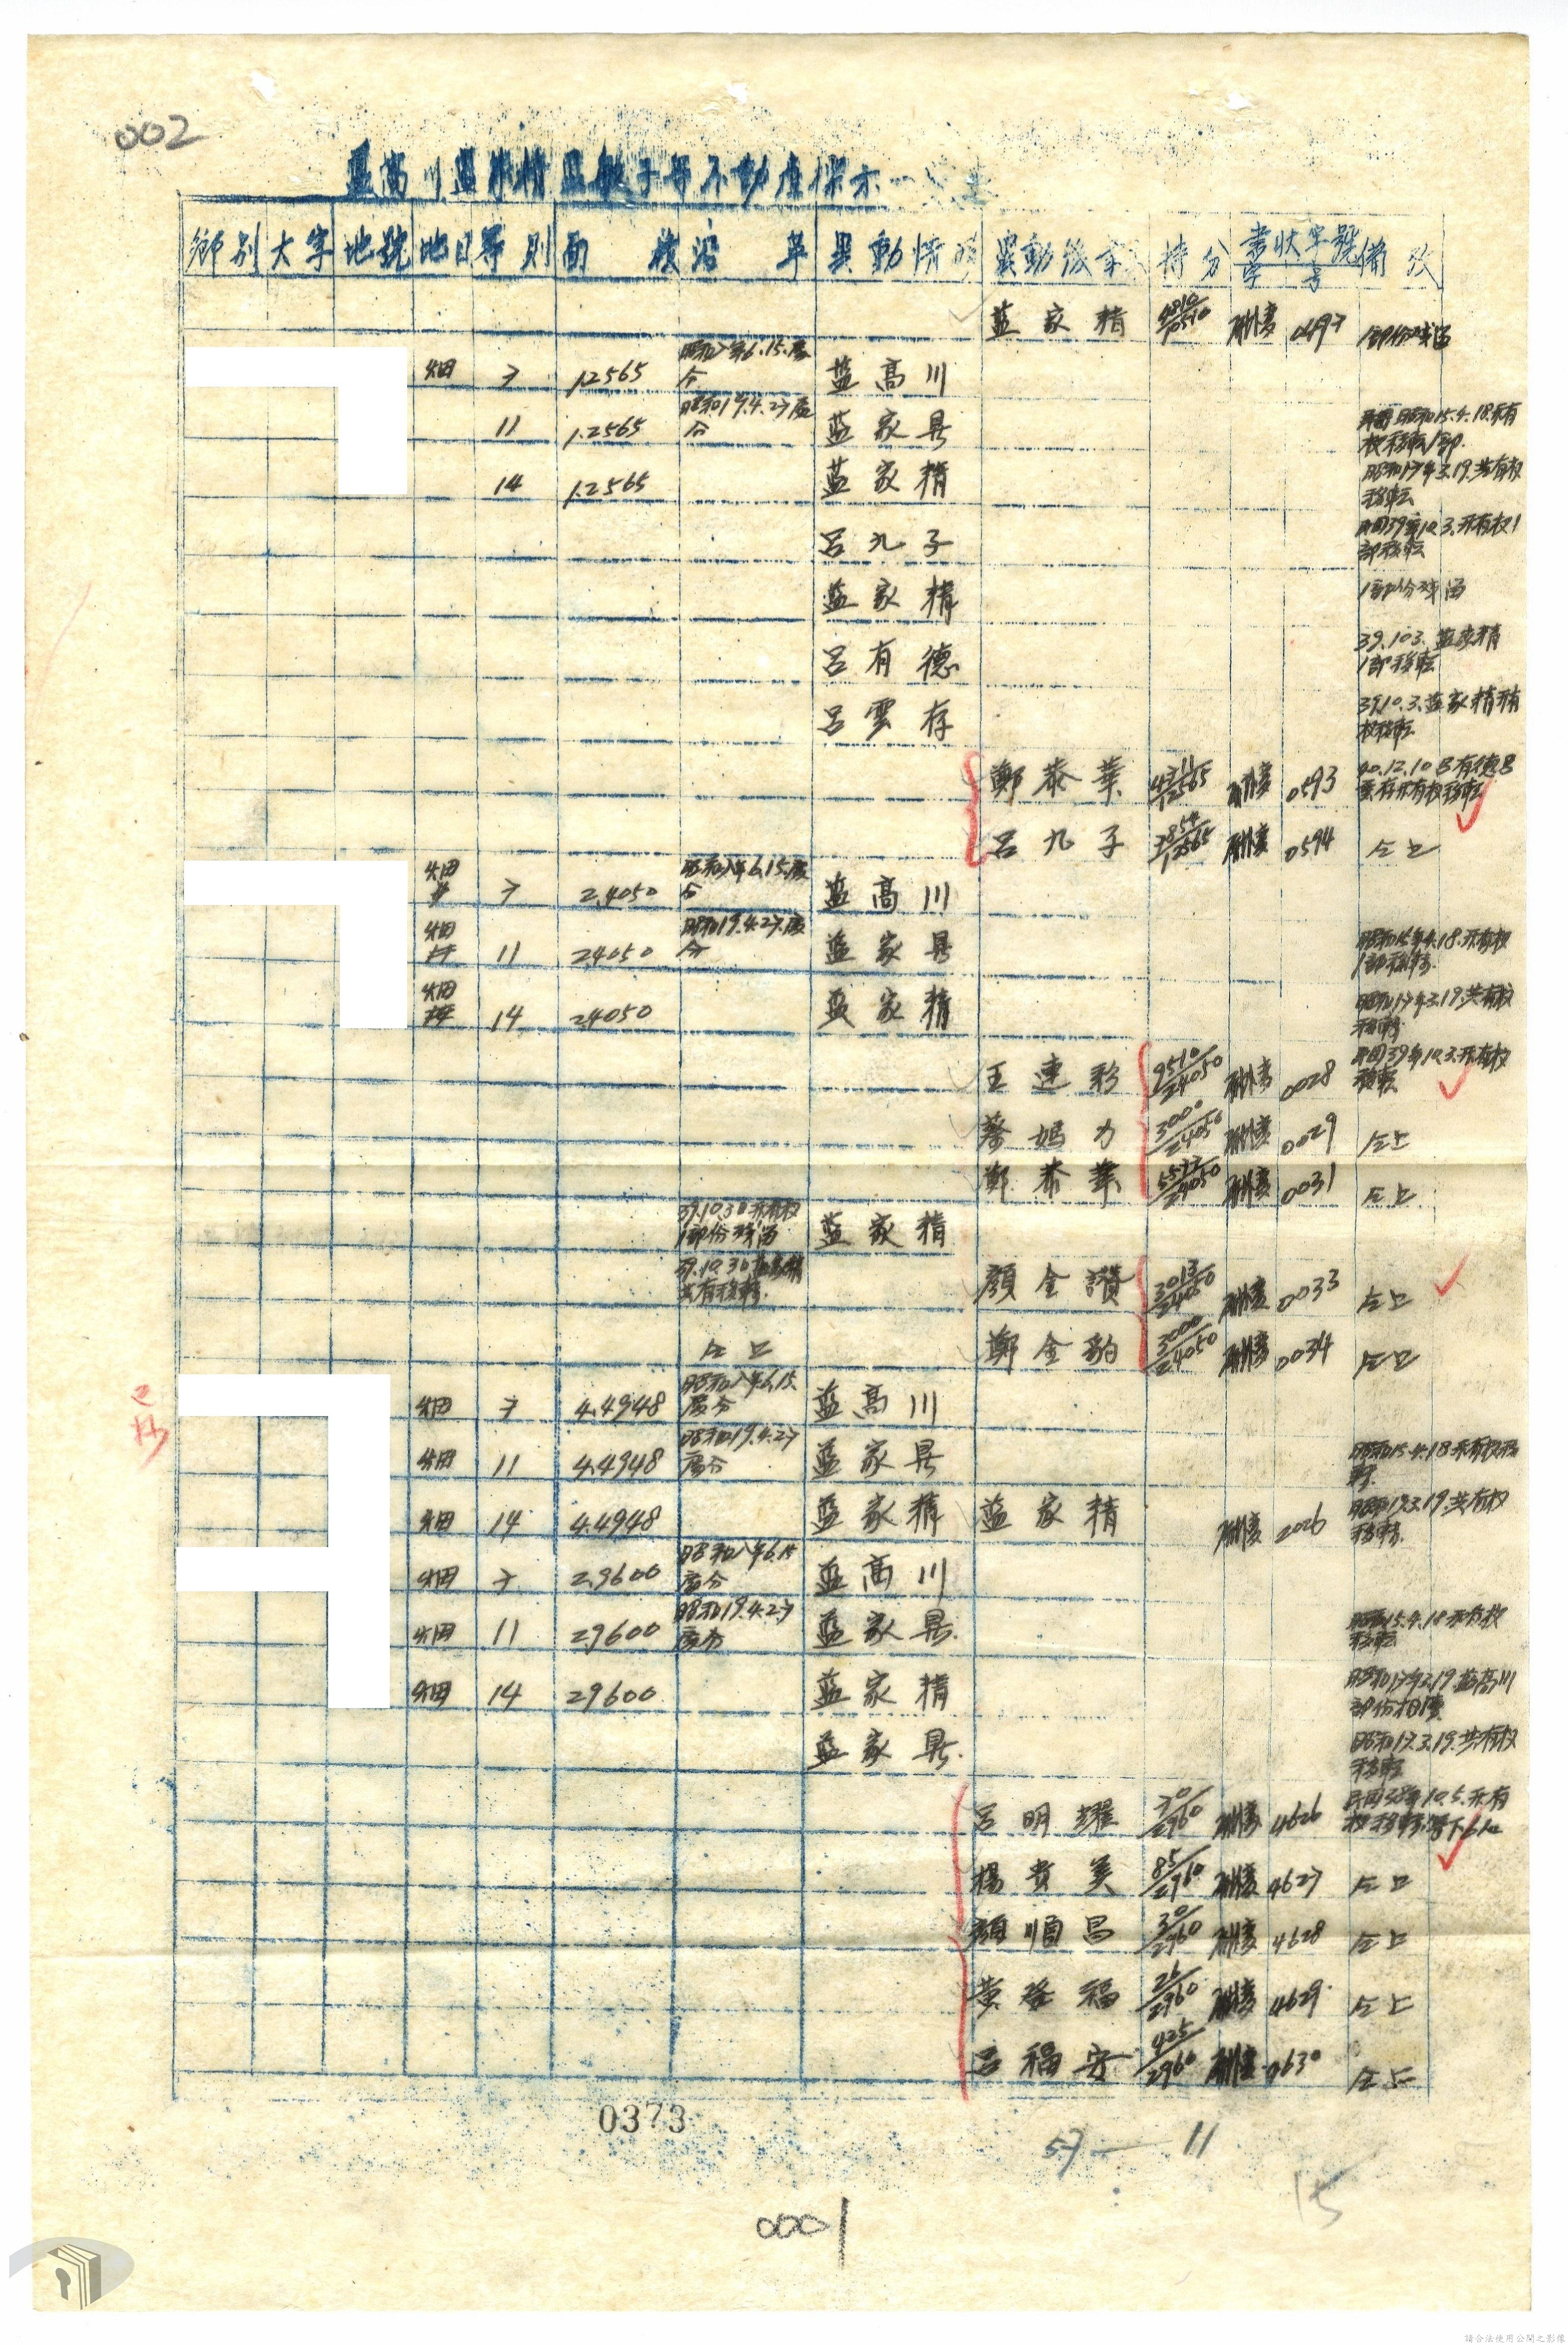 002
藍高川藍家精藍敏子等不動產標示一覽表
鄉別 大字 地號 地目 等則 面積 沿革 異動情形 異動後 持分 書狀字號 字 号 備攷
藍家精 0497 1部份残留
畑 7 1.2565 昭和八年6.15.處分 藍高川
11 1.2565 昭和19.4.27處分 藍家晃 昭和15.4.18.所有权移転1部
14 1.2565 藍家精 昭和17年3.19.共有权移転
呂九子 民国39年10.3.所有权1部移転
藍家精 1部份残留
呂有德 39.10.3.藍家精1部移転
呂雲存 39.10.3.藍家精所有权移転
鄭泰業 4711/12565 0593 40.12.10呂有德呂雲存所有权移転
呂九子 7854/12565 0594 仝上
畑 7 2.4050 昭和八年6.15.處分 藍高川
畑 11 2.4050 昭和19.4.27.處分 藍家晃 昭和15年4.18.所有权1部移転
畑 14 2.4050 藍家精 昭和17年3.19.共有权移転
王連彩 9510/24050 0028 民国39年10.3.所有权移転
蔡媽力 3000/24050 0029 仝上
鄭泰業 5527/24050 0031 仝上
39.10.30所有权1部份残留 藍家精
39.10.30藍家精共有移転. 顏金讚 3013/24050 0033 仝上
仝上 鄭金豹 3000/24050 0034 仝上
已抄
畑 7 4.4948 昭和八年6.15.處分 藍高川
畑 11 4.4948 昭和19.4.27處分 藍家晃 昭和15.4.18.所有权移転
畑 14 4.4948 藍家精 藍家精 2026 昭和17.3.19.共有权移転.
畑 7 2.9600 昭和八年6.15處分 藍高川
畑 11 2.9600 昭和19.4.27處分 藍家晃. 昭和15.4.18所有权移転
畑 14 2.9600 藍家精 昭和17年3.19藍高川部份相續
藍家晃. 昭和17.3.19.共有权移転
呂明耀 70/2960 4626 民国38年10.5.所有权移転
楊貴美 85/2960 4627 仝上
顏順昌 30/2960 4628 仝上
黃登福 26/2960 4629 仝上
呂福安 425/2960 0630 仝上
0373
57—11
15
0001
請合法使用公開之影像